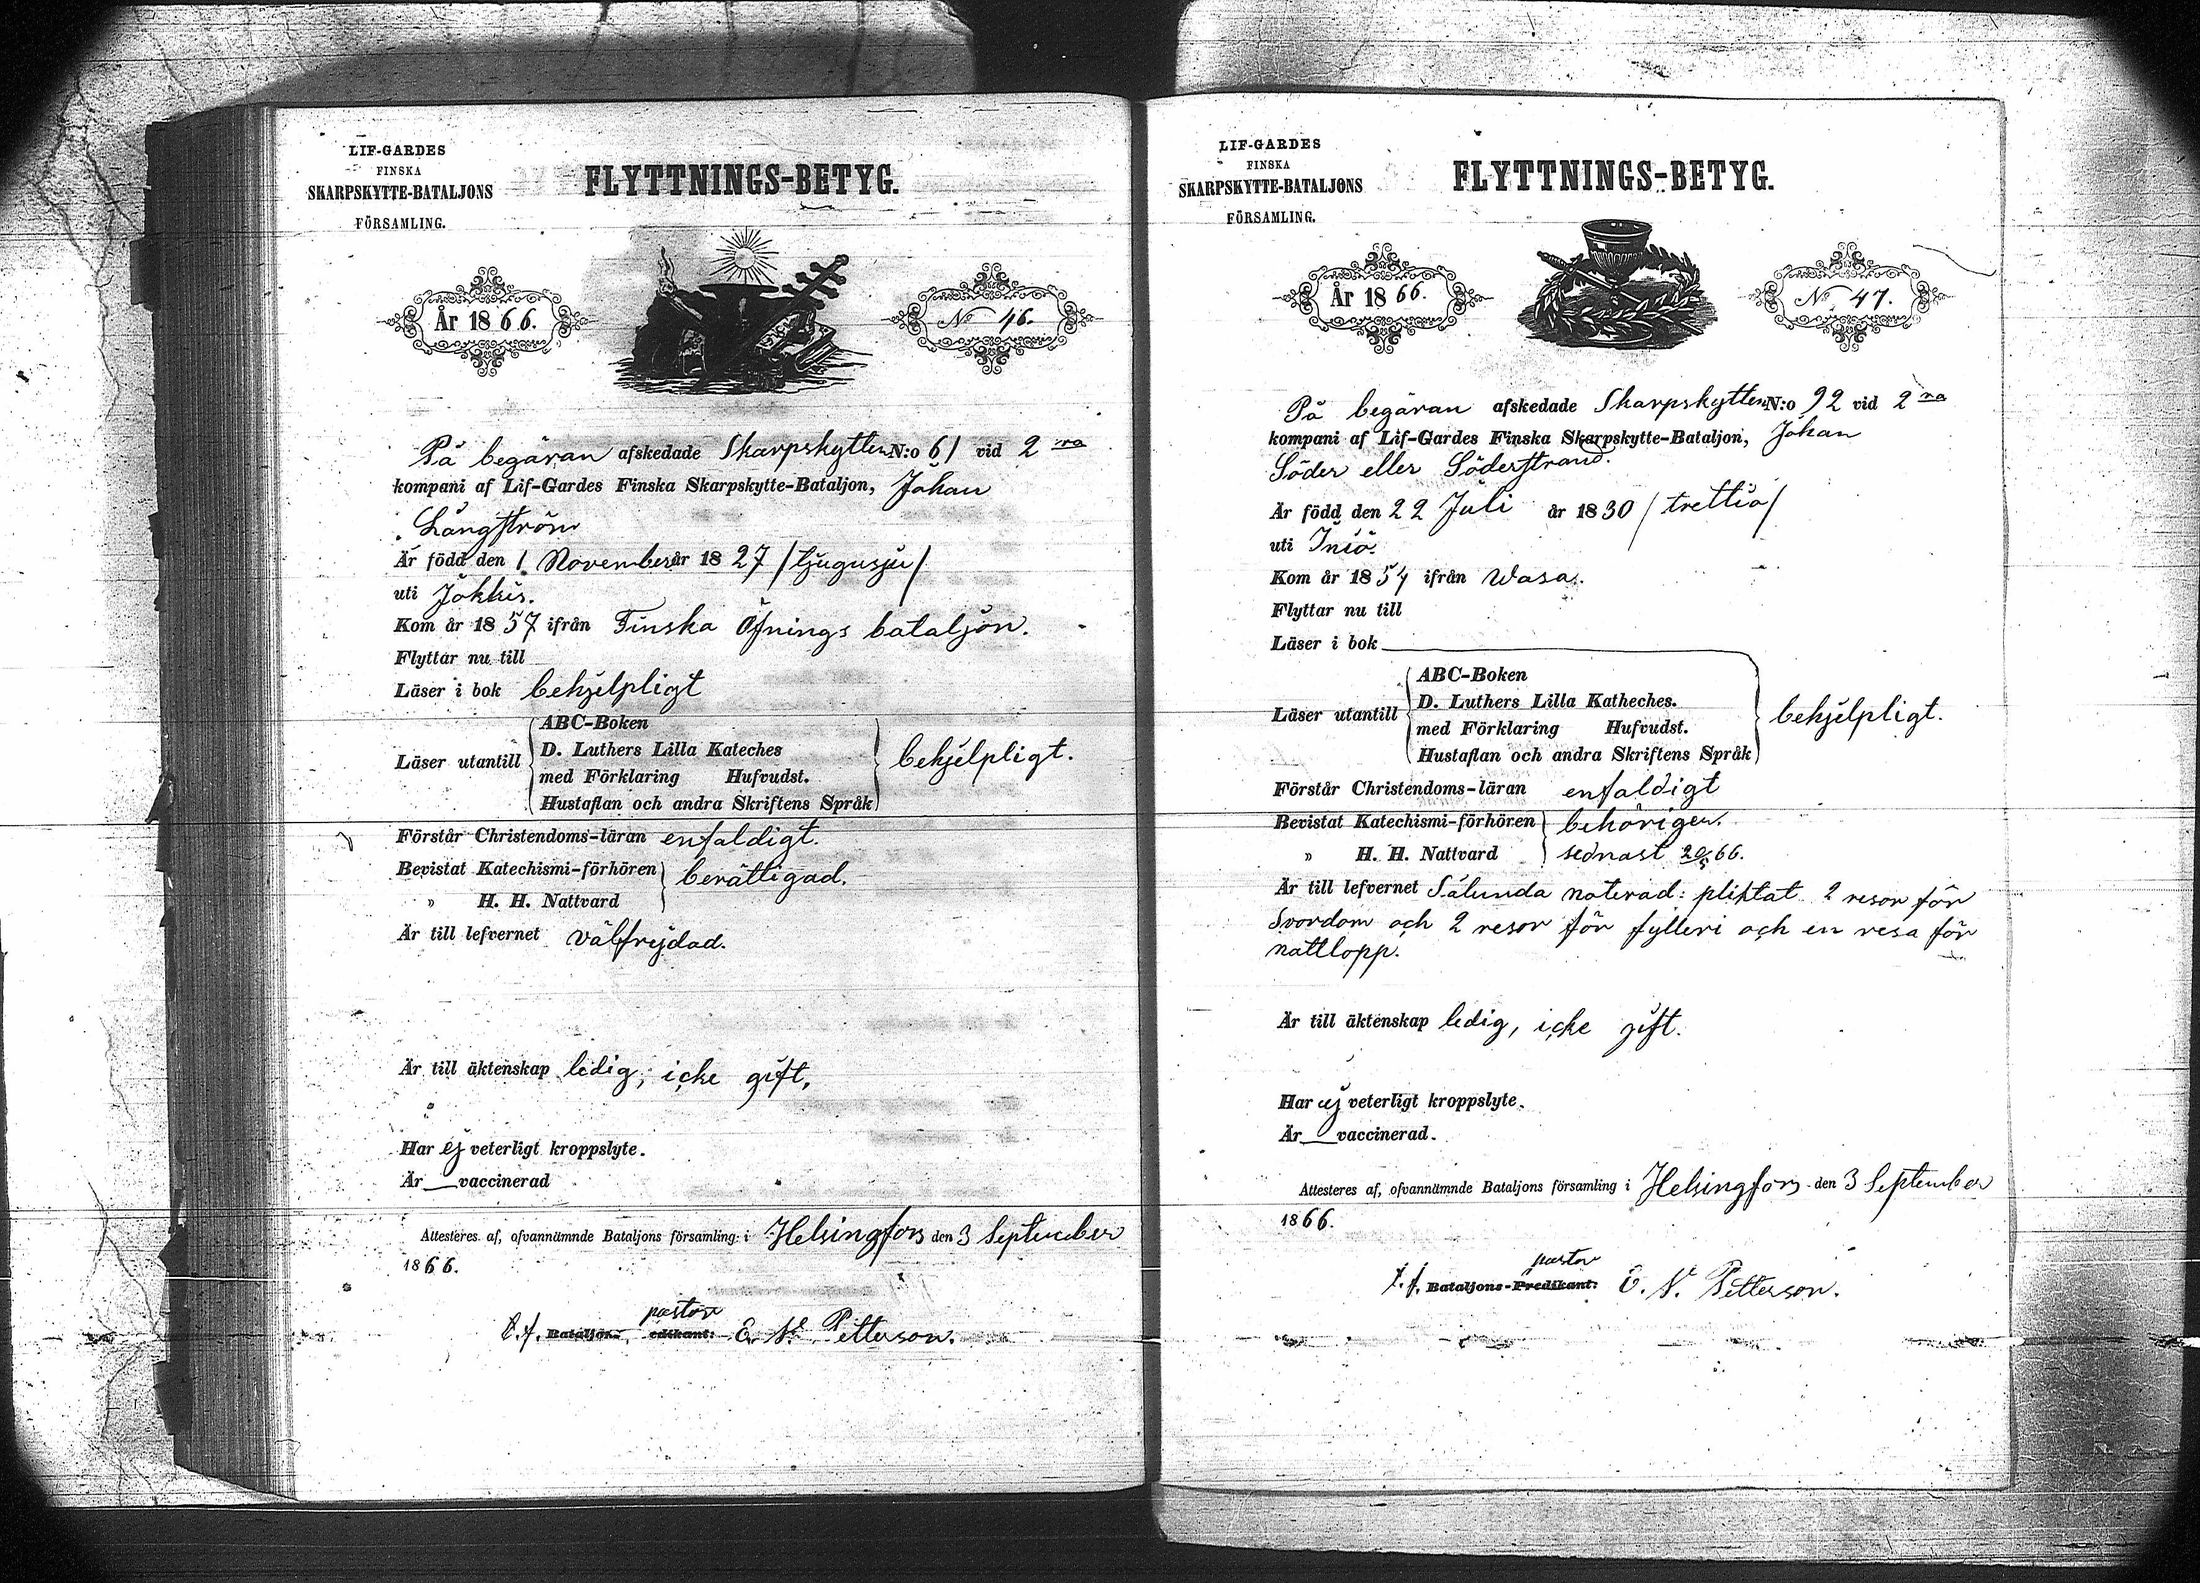 LIF-GARDES
FINSKA
SKARPSKYTTE-BATALJONS
FÖRSAMLING.
FLYTTNINGS-BETYG.
År 1866.
No 46.
På begäran afskedade Skarpskytten N:o 61 vid 2ra
kompani af Lif-Gardes Finska Skarpskytte-Bataljon, Johan
Långström
Är född den 1 November år 1827 /tjugusju/
uti Jokkis.
Kom år 1857 ifrån Finska Öfnings bataljon.
Flyttar nu till
Läser i bok behjelpligt
Läser utantill
ABC-Boken
D. Luthers Lilla Kateches
med Förklaring Hufvudst.
Hustaflan och andra Skriftens Språk
behjelpligt.
Förstår Christendoms-läran enfaldigt.
Bevistat Katechismi-förhören berättigad.
" H. H. Nattvard
Är till lefvernet välfrejdad.
Är till äktenskap ledig, icke gift.
Har ej veterligt kroppslyte.
Är — vaccinerad
Attesteres af, ofvannämnde Bataljons församling i Helsingfors den 3 September
1866.
pastor
t.f. Bataljons-Predikant: E. W. Petterson.
LIF-GARDES
FINSKA
SKARPSKYTTE-BATALJONS
FÖRSAMLING.
FLYTTNINGS-BETYG.
År 1866.
No 47.
På begäran afskedade Skarpskytten N:o 92 vid 2ra
kompani af Lif-Gardes Finska Skarpskytte-Bataljon, Johan
Söder eller Söderstrand.
Är född den 22 Juli år 1830 /trettio/
uti Iniö.
Kom år 1854 ifrån Wasa.
Flyttar nu till
Läser i bok
Läser utantill
ABC-Boken
D. Luthers Lilla Katheches.
med Förklaring Hufvudst.
Hustaflan och andra Skriftens Språk
behjelpligt.
Förstår Christendoms-läran enfaldigt
Bevistat Katechismi-förhören behörigen.
" H. H. Nattvard sednast 20/5 66.
Är till lefvernet Sålunda noterad: pliktat 2 resor för
Svordom och 2 resor för fylleri och en resa för
nattlopp.
Är till äktenskap ledig, icke gift.
Har ej veterligt kroppslyte.
Är — vaccinerad.
Attesteres af, ofvannämnde Bataljons församling i Helsingfors den 3 September
1866.
pastor
t.f. Bataljons-Predikant: E. W. Petterson.